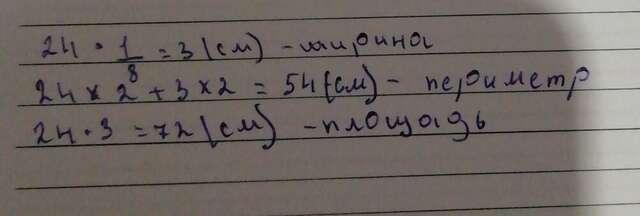 24 · 1/8 = 3 (см) - ширина
24 × 2 + 3 × 2 = 54 (см) - периметр
24 · 3 = 72 (см) - площадь